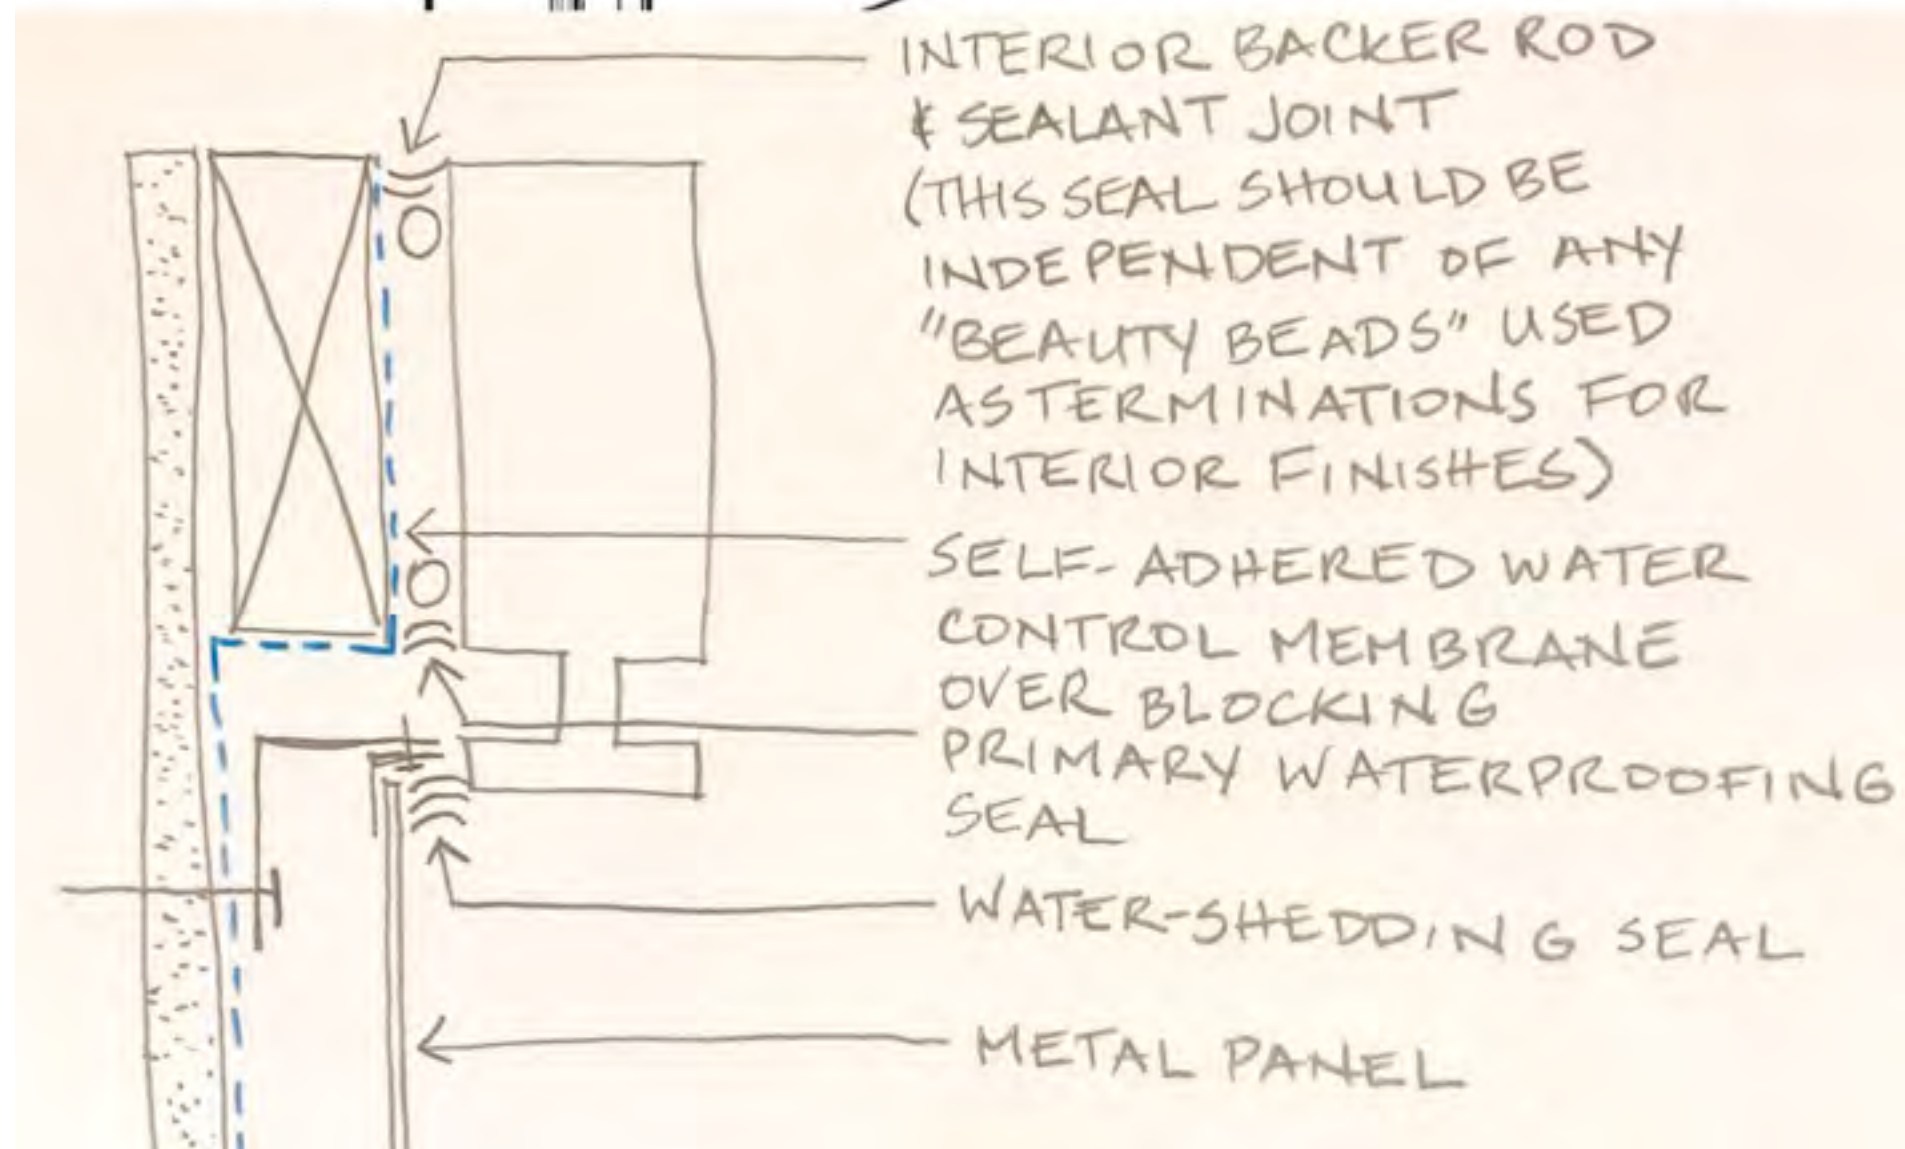 INTERIOR BACKER ROD
& SEALANT JOINT
(THIS SEAL SHOULD BE
INDEPENDENT OF ANY
"BEAUTY BEADS" USED
AS TERMINATIONS FOR
INTERIOR FINISHES)
SELF-ADHERED WATER
CONTROL MEMBRANE
OVER BLOCKING
PRIMARY WATERPROOFING
SEAL
WATER-SHEDDING SEAL
METAL PANEL